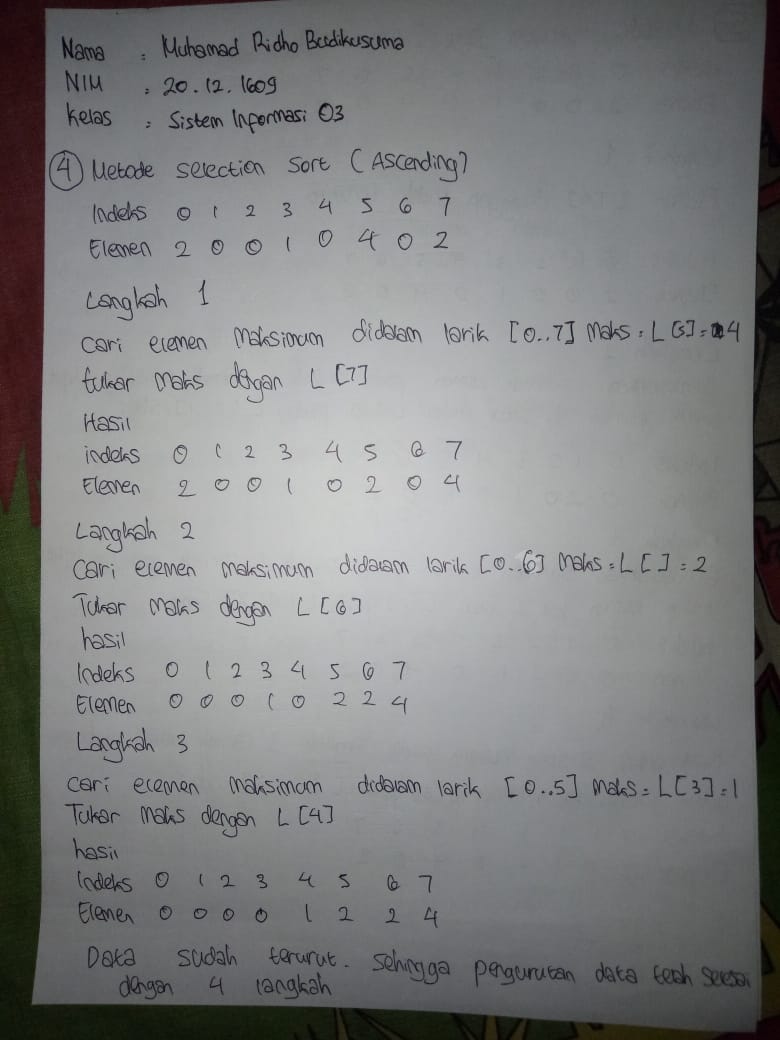 Nama : Muhamad Ridho Budikusuma
NIM : 20.12.1609
Kelas : Sistem Informasi 03
4 Metode selection Sort (Ascending)
Indeks 0 1 2 3 4 5 6 7
Elemen 2 0 0 1 0 4 0 2
Langkah 1
Cari elemen Maksimum didalam larik [0..7] Maks = L [5] = 4
tukar maks dengan L [7]
Hasil
indeks 0 1 2 3 4 5 6 7
Elemen 2 0 0 1 0 2 0 4
Langkah 2
Cari elemen maksimum didalam larik [0..6] Maks = L [ ] = 2
Tukar maks dengan L [6]
hasil
Indeks 0 1 2 3 4 5 6 7
Elemen 0 0 0 1 0 2 2 4
Langkah 3
Cari elemen maksimum didalam larik [0..5] maks = L [3] = 1
Tukar maks dengan L [4]
hasil
Indeks 0 1 2 3 4 5 6 7
Elemen 0 0 0 0 1 2 2 4
Data sudah terurut. Sehingga pengurutan data telah selesai
dengan 4 langkah